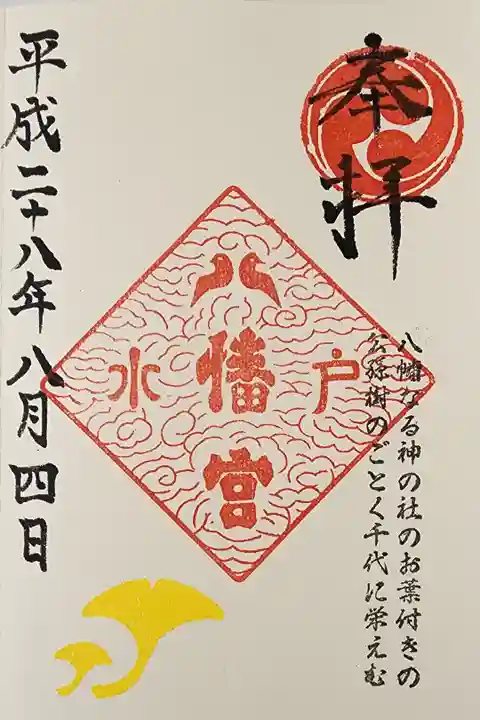 奉拝
八幡なる神の社のお葉付きの
公孫樹のごとく千代に栄えむ
八幡宮
水戸
平成二十八年八月四日